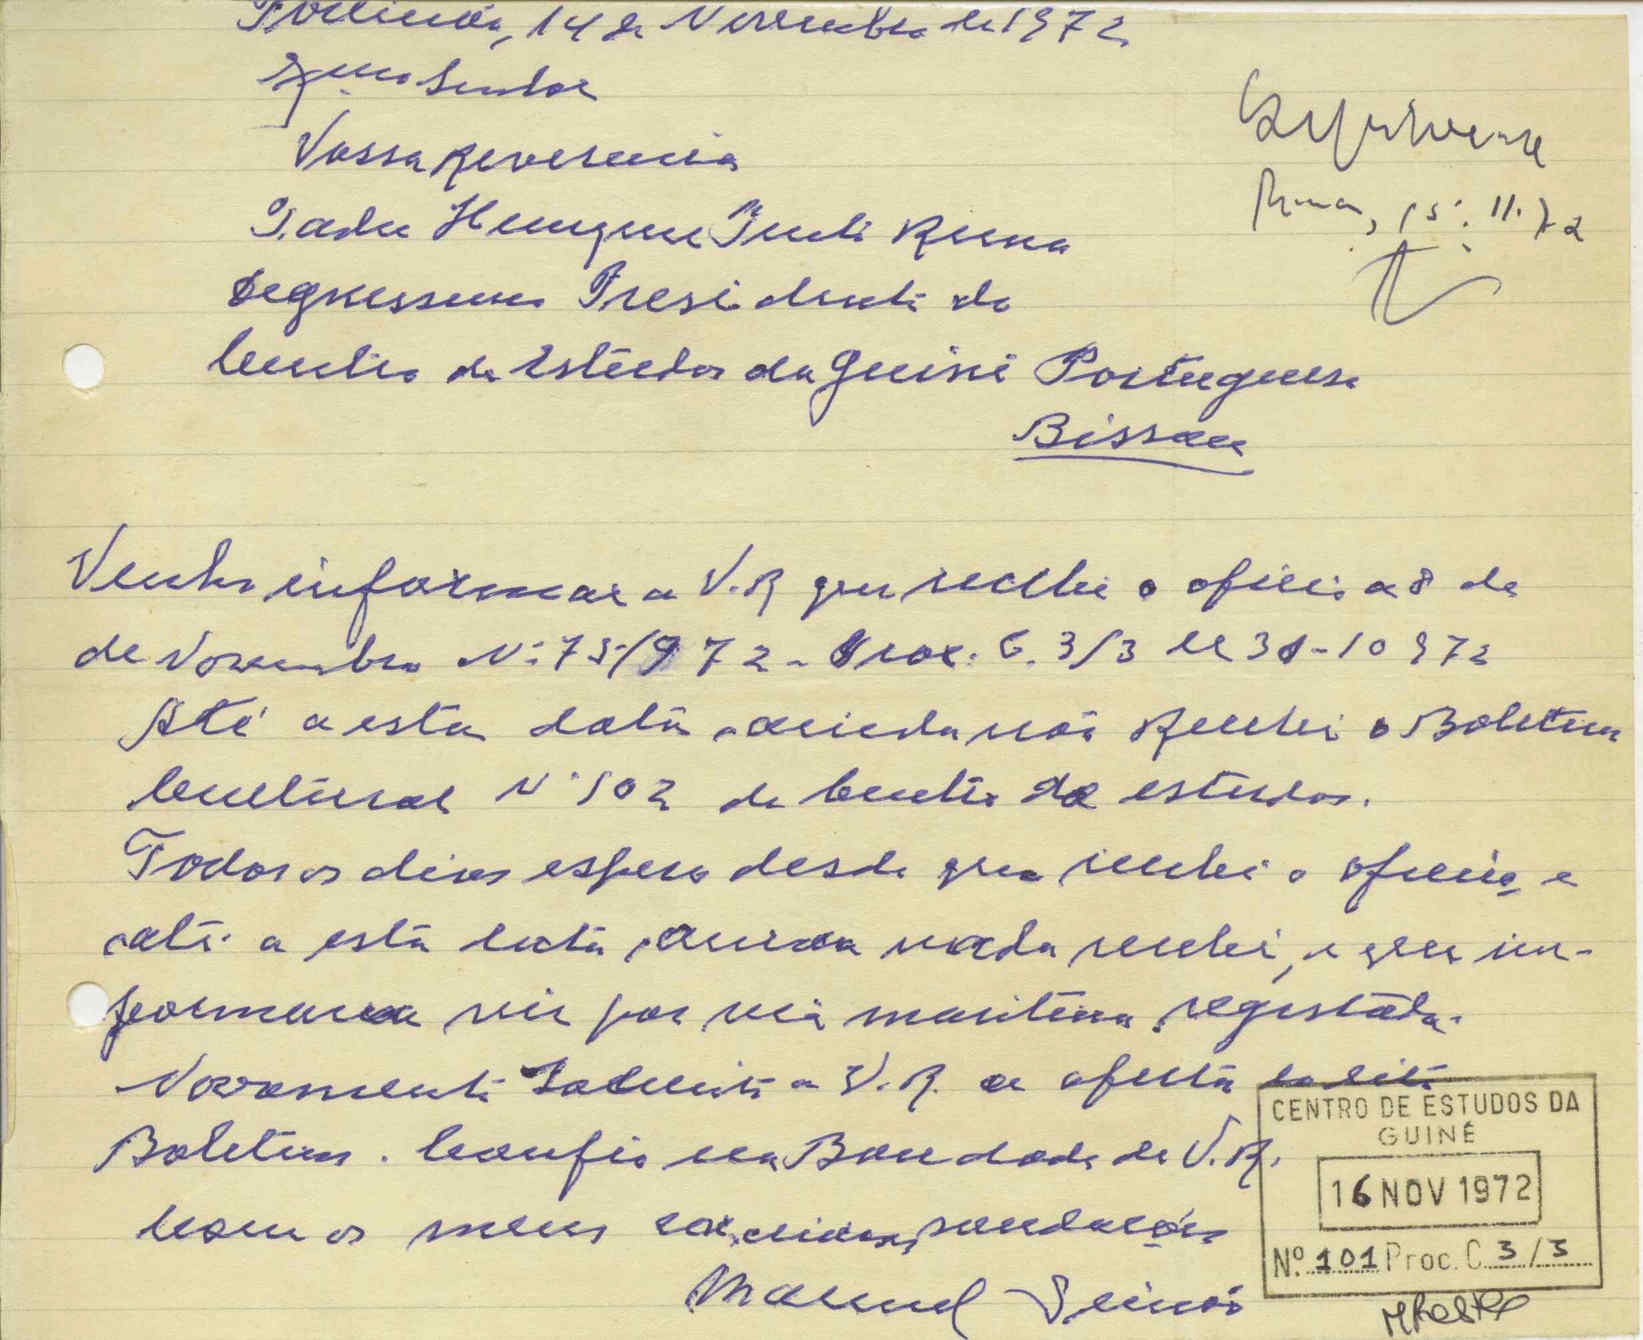 14 de Novembro de 1972
Exmo Senhor
Vossa Reverencia
Padre Henrique Pinto Rema
Presidente do
Centro de Estudos da Guiné Portuguesa
Bissau
Venho informar a V.R que recebi o oficio a 8 de
de Novembro Nº 75/972 - Proc. C. 3/3 de 31-10 972
Até a esta data ainda não Recebi o Boletim
Cultural Nº 102 do Centro de estudos.
Todos os dias espero desde que recebi o oficio e
até a esta data ainda nada recebi, e que in-
formava vir por via maritima registada.
Novamente Solicito a V.R. a oferta do dito
Boletim. Confio na Bondade de V.R.
Com os meus saudações
Manuel Simão
Bissau, 15.11.72
CENTRO DE ESTUDOS DA
GUINÉ
16 NOV 1972
Nº. 101 Proc. C 3/3